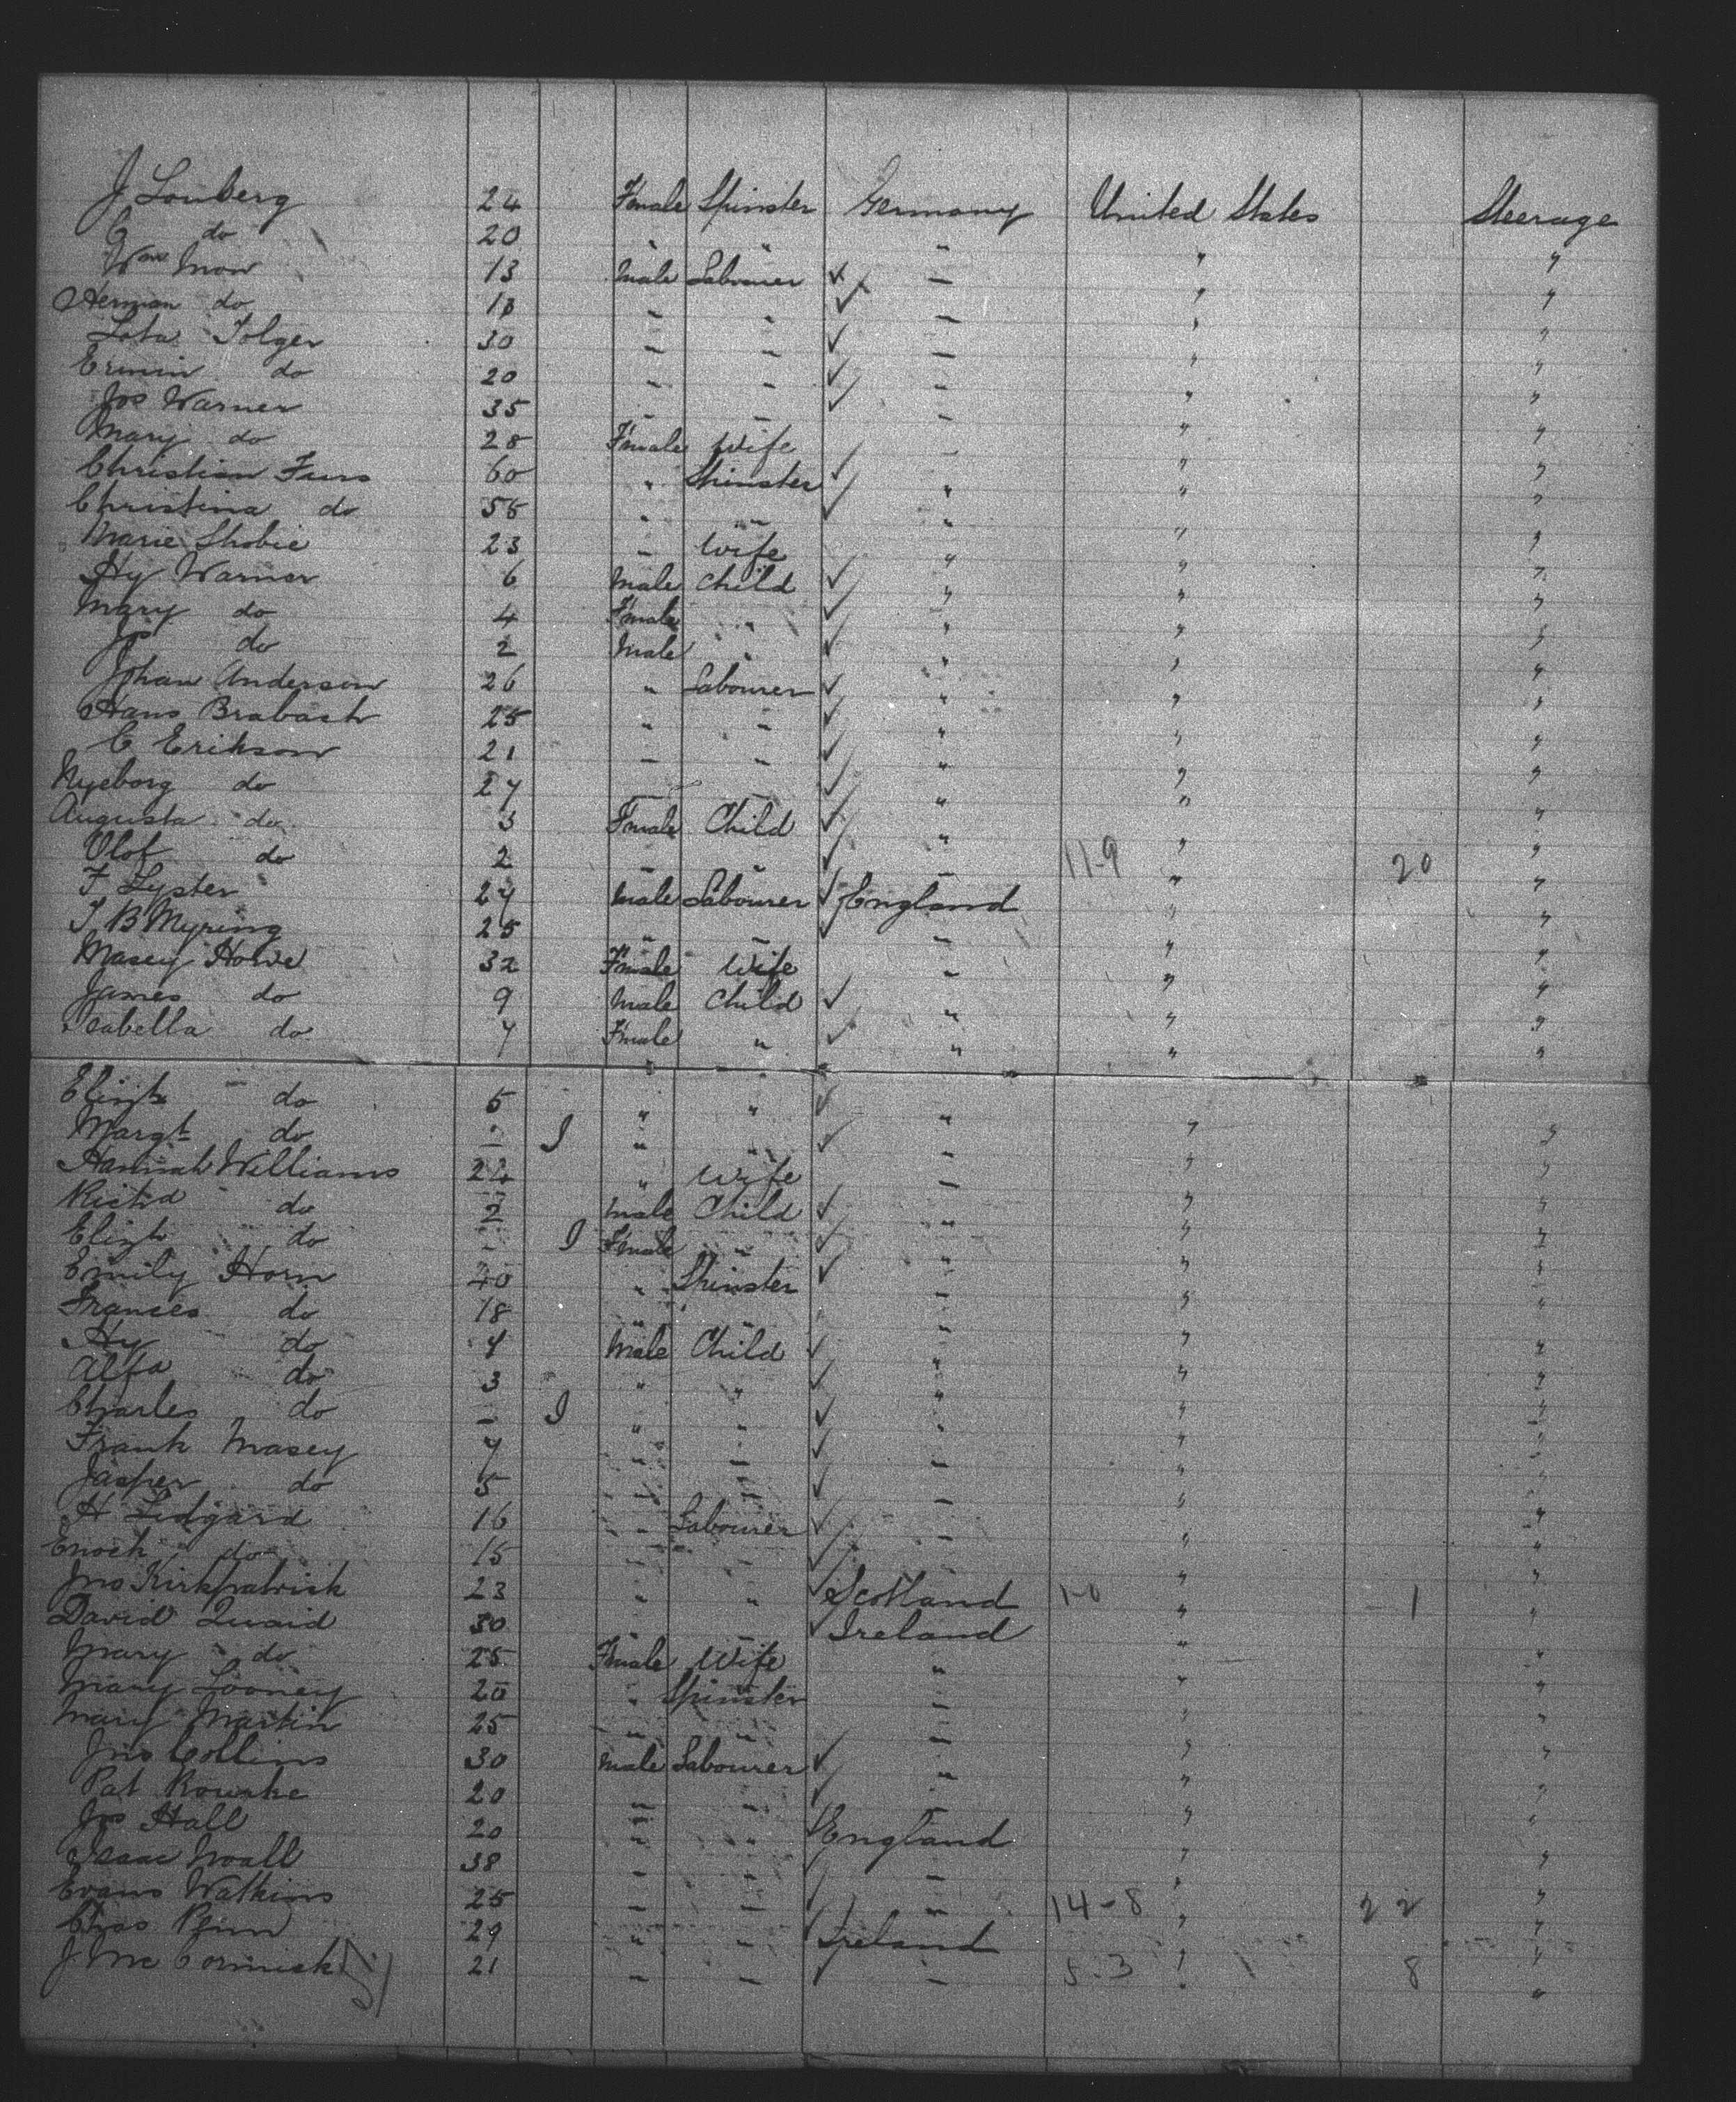 J Lonberg 24 Female Spinster Germany United States Steerage
C do 20 " " " " "
Wm Mow 13 Male Labourer ✓ " " "
Herman do 18 " " ✓ " " "
Lota Folger 30 " " ✓ " " "
Erwin do 20 " " ✓ " " "
Jos Warner 35 " " ✓ " " "
Mary do 28 Female Wife " " "
Christian Furs 60 " Spinster ✓ " " "
Christina do 56 " " ✓ " " "
Marie Shobie 23 " Wife " " "
Hy Warner 6 Male Child ✓ " " "
Mary do 4 Female " ✓ " " "
Jos do 2 Male " ✓ " " "
Johan Anderson 26 " Labourer ✓ " " "
Hans Brabash 25 " " ✓ " " "
C Erikson 21 " " ✓ " " "
Nyeborg do 27 ✓ " " "
Augusta do 3 Female Child ✓ " " "
Olof do 2 " " ✓ " 11-9 " 20 "
F Lyster 27 Male Labourer ✓ England " "
T B Myring 25 " " ✓ " " "
Masey Howe 32 Female Wife " " "
James do 9 Male Child ✓ " " "
Isabella do 7 Female " ✓ " " "
Elizth do 5 " " ✓ " " "
Margt do - I " " ✓ " " "
Hannah Williams 24 " Wife " " "
Richd do 2 Male Child ✓ " " "
Elizth do - I Female " ✓ " " "
Emily Horn 20 " Spinster ✓ " " "
Frances do 18 " " " " "
Hy do 7 Male Child ✓ " " "
Alfa do 3 " " ✓ " " "
Charles do - I " " ✓ " " "
Frank Masey 7 " " ✓ " " "
Jasper do 5 " " ✓ " " "
H Lidgard 16 " Labourer ✓ " " "
Enoch do 15 " " ✓ " " "
Jno Kirkpatrick 23 " " ✓ Scotland 1-0 " 1 "
David Quaid 30 ✓ Ireland " "
Mary do 25 Female Wife " " "
Mary Looney 20 " Spinster " " "
Mary Martin 25 " " " " "
Jno Collins 30 Male Labourer ✓ " " "
Pat Rourke 20 " " ✓ " " "
Jos Hall 20 " " ✓ England " "
Isaac Noall 38 " " ✓ " " "
Evans Watkins 25 " " ✓ " 14-8 " 22 "
Chas Penn 29 " " ✓ Ireland " "
J McCormick 21 " " ✓ " 5-3 " 8 "